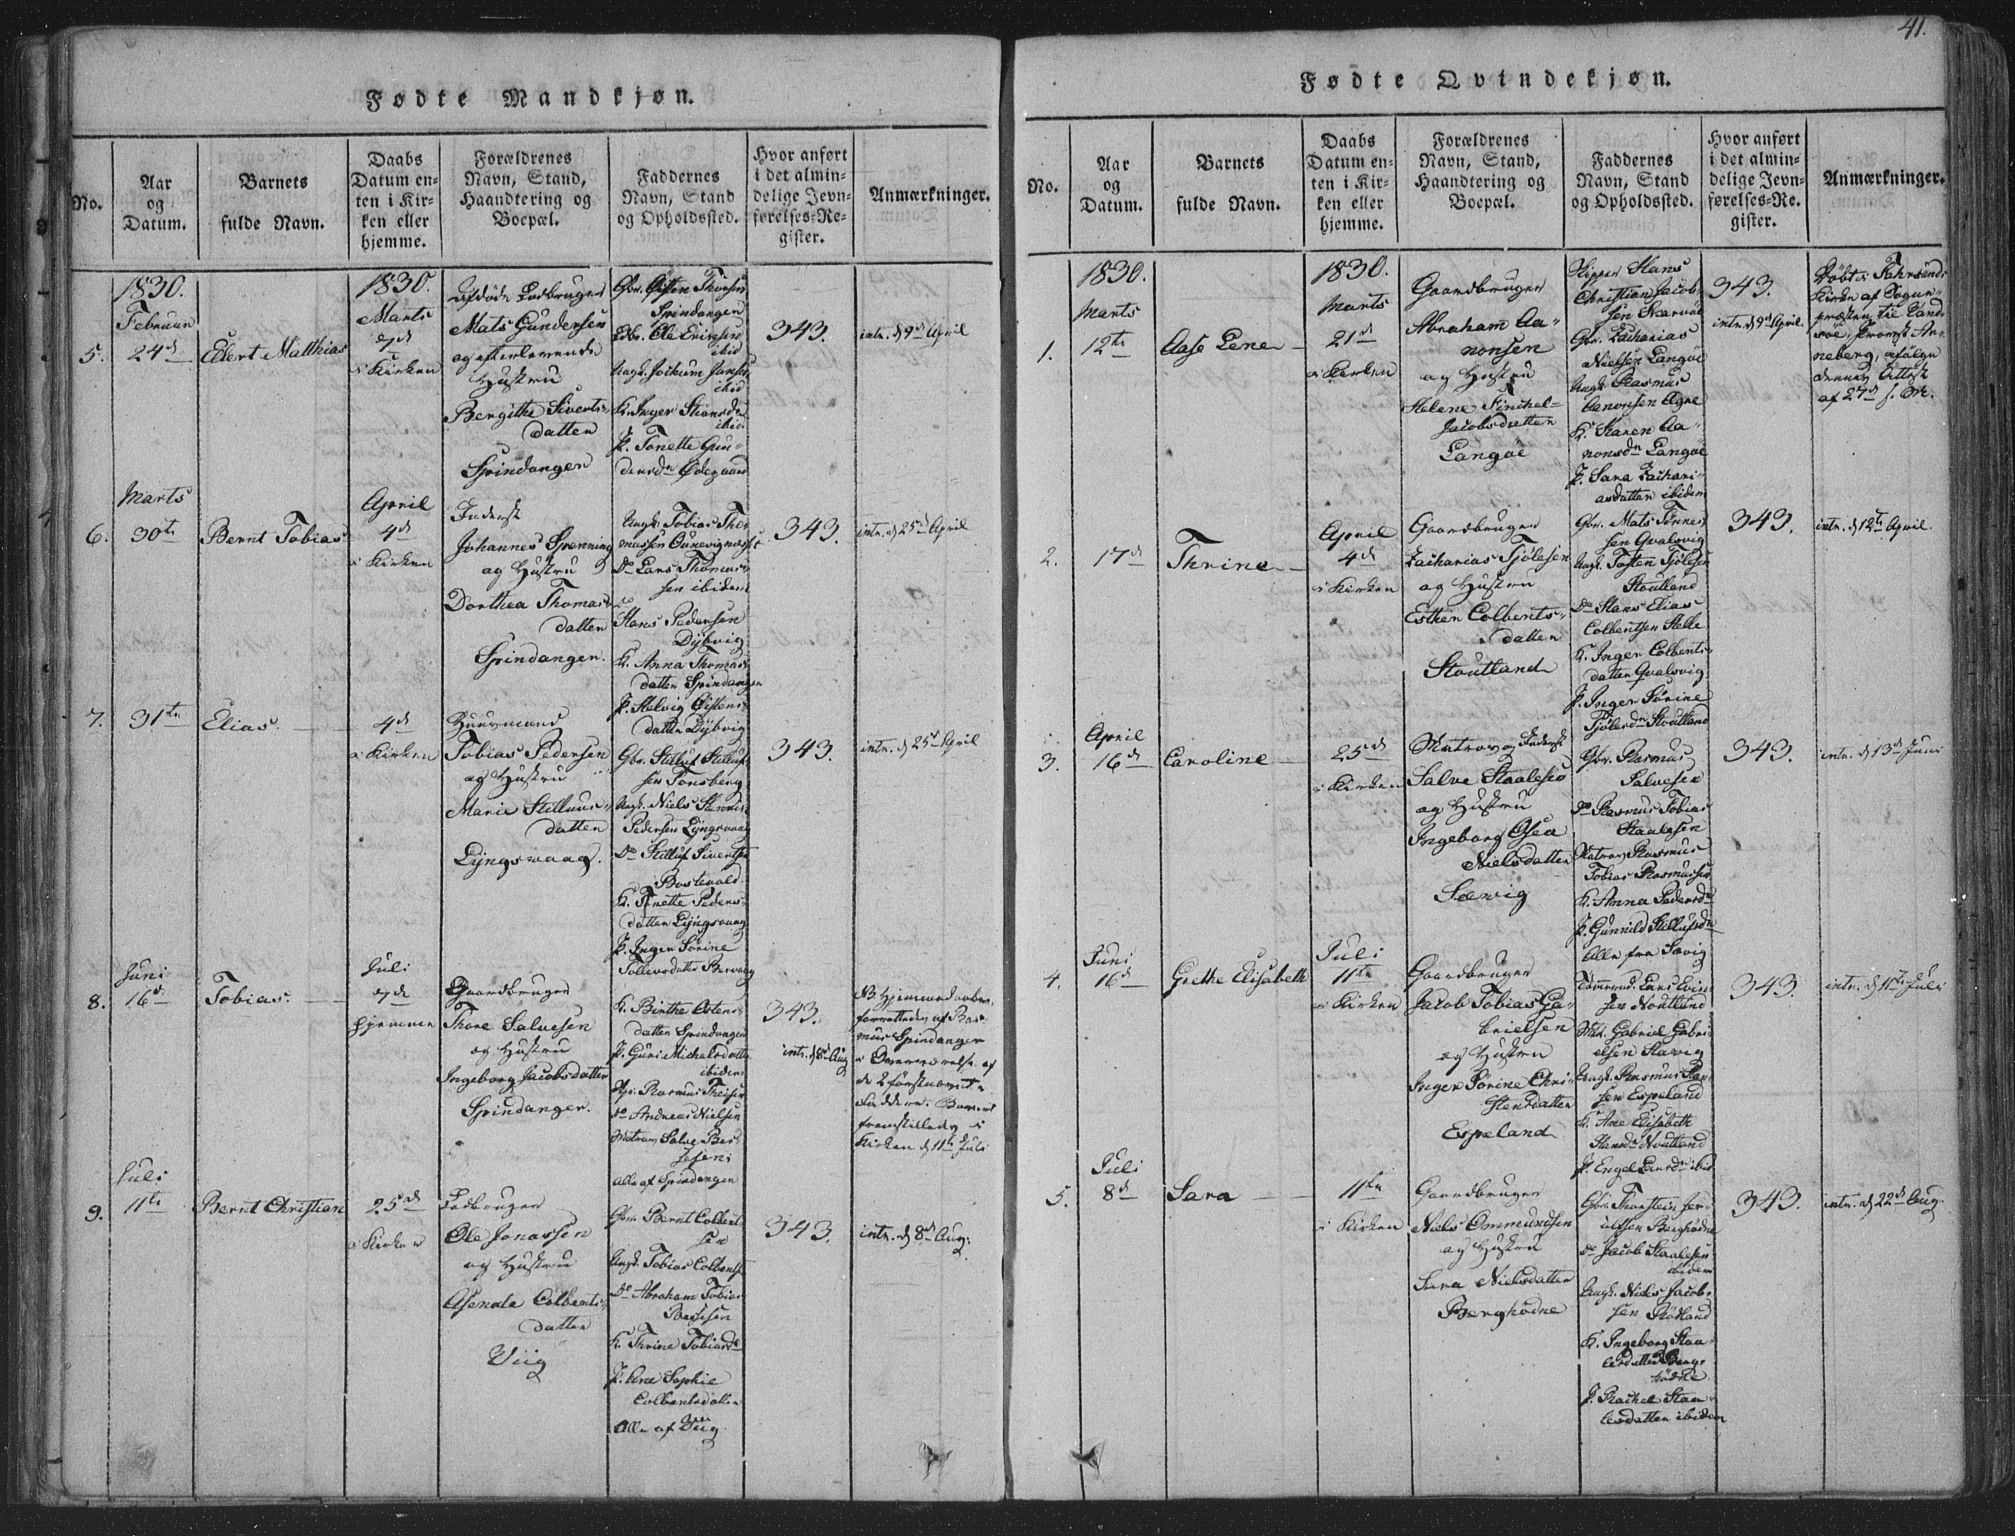 41.
Fødte Mandkjøn.
No.
Aar
og
Datum.
Barnets
fulde Navn.
Daabs
Datum en-
ten i Kir-
ken eller
hjemme.
Forældrenes
Navn, Stand,
Haandtering og
Boepæl.
Faddernes
Navn, Stand
og Opholdssted.
Hvor anført
i det almin-
delige Jevn-
førelses-Re-
gister.
Anmærkninger.
5.
1830.
Februar
24de
Edert Matthias
1830.
Marts
7de
i Kirken
Afdøde
Mats Gundersen
og efterlevende
Hustru
Bergithe Siverts-
datter
Spindangen
Gbr. Østen
Spindangen
Ole Ericksen
ibid
Ungk. Jochum Jans
ibid
K. Inger
ibid
P. Tonette Gun-
dersdr Ødegaard
343.
intr. d 9de April
6.
Marts
30te
Bernt Tobias
April
4de
i Kirken
Inderst
Johannes Spenning
og Hustru
Dorthea Thomas-
datter
Spindangen.
Ungk. Tobias Tho-
massen
Do Lars Thomas-
sen ibidem
Do
Hans Pedersen
Dybvig
K. Anna Thomas-
datter Spindangen
P. Helvig Østens-
datter Dybvig
343.
intr. d 25de April
7.
31te
Elias.
4de
i Kirken
Huusmand
Tobias Pedersen
og Hustru
Marie Helluus-
datter
Lyngsvaag.
Gbr.
sen Tonsberg
Ungk. Niels
Pedersen Lyngsvaag
Do
K. Tonette Peders-
datter Lyngsvaag
P. Inger Sørine
Tollevsdatter
343.
intr. d 25de April
8.
Juni
16de
Tobias.
Juli
7de
hjemme
Gaardbruger
Thore Salvesen
og Hustru
Ingeborg Jacobsdatter
Spindangen.
K. Birthe Østens-
datter Spindangen
P. Guri Michelsdatter
ibidem
Gbr. Rasmus
Do Andreas Nielsen
Matros Salve
Alle af Spindangen
343.
intr. d 8de Aug
NB. Hjemmedaaben
forrettedes af Ras-
mus Spindangen
i Overværelse af
de 2 førstnævnte
Faddere. Barnet
fremstilledes i
Kirken d 11te Juli
9.
Juli
11te
Bernt Christian
25de
i Kirken
Ole Jonassen
og Hustru
Asenate Colbents-
datter
Viig
Gbr. Bernt Colbent-
sen
Ungk. Tobias Colbents
Do Abraham Tobias
K. Thrine Tobiasdr
P. Ane Sophie
Colbentsdatter
Alle af Viig
343.
intr. d 8de Aug.
Fødte Qvindekjøn.
No.
Aar
og
Datum.
Barnets
fulde Navn.
Daabs
Datum en-
ten i Kir-
ken eller
hjemme.
Forældrenes
Navn, Stand,
Haandtering og
Boepæl.
Faddernes
Navn, Stand
og Opholdssted.
Hvor anført
i det almin-
delige Jevn-
førelses-Re-
gister.
Anmærkninger.
1.
1830.
Marts
12te
Aase Lene
1830.
Marts
21de
i Kirken
Gaardbruger
Abraham Aa-
nonsen
og Hustru
Helene
Jacobsdatter
Langøe
Skipper Hans
Christian Jacob-
sen
Gbr. Zacharias
Nielsen Langøe
Ungk. Rasmus
Aanonsen
K. Karen Aa-
nonsdr Langøe
P. Sara Zachari-
asdatter ibidem
343.
intr. d 9de April.
Døbt i Farsunds
Kirke af Sogne-
præsten til
af 27de
2.
17de
Thrine
April
4de
i Kirken
Gaardbruger
Zacharias Tjølesen
og Hustru
Esther Colbents-
datter
Stoutland
Gbr. Mats Tønnes-
sen Qvalsvig
Ungk. Tosten Tjølesen
Stoutland
Do Hans Elias
Colbentsen
K. Inger Colbents-
datter Qvalsvig
P. Inger Sørine
Tjølesdr Stoutland
343.
intr. d 12te April.
3.
April
16de
Caroline
25de
i Kirken
Matros og Inderst
Salve Staalesen
og Hustru
Ingeborg Osea
Nielsdatter
Sævig
Gbr. Rasmus
Salvesen
Do Rasmus Tobias
Staalesen
Matros Rasmus
Tobias Rasmussen
K. Anna Pedersdr
P. Gunnild
Alle fra Sævig
343.
intr. d 13de Juni
4.
Juni
16de
Grethe Elisabeth
Juli
11te
i Kirken
Gaardbruger
Jacob Tobias Ga-
brielsen
og Hustru
Inger Sørine Chri-
stensdatter
Espeland
Lars
Gabriel Gabri-
elsen Sævig
Ungk. Rasmus
sen Espeland
K. Ane Elisabeth
P. Engel Larsdr ibid
343.
intr. d 11te Juli
5.
Juli
8de
Sara
11te
i Kirken
Gaardbruger
Niels Ommundsen
og Hustru
Sara Nielsdatter
Berghødne
Gbr. Thorstein
Berghødne
Do Jacob Staalesen
ibidem
Ungk. Niels Jacob-
sen
K. Ingeborg Staa-
lesdatter Berg-
hødne
P. Rachel Staa-
lesdatter ibidem
343.
intr. d 22de Aug.